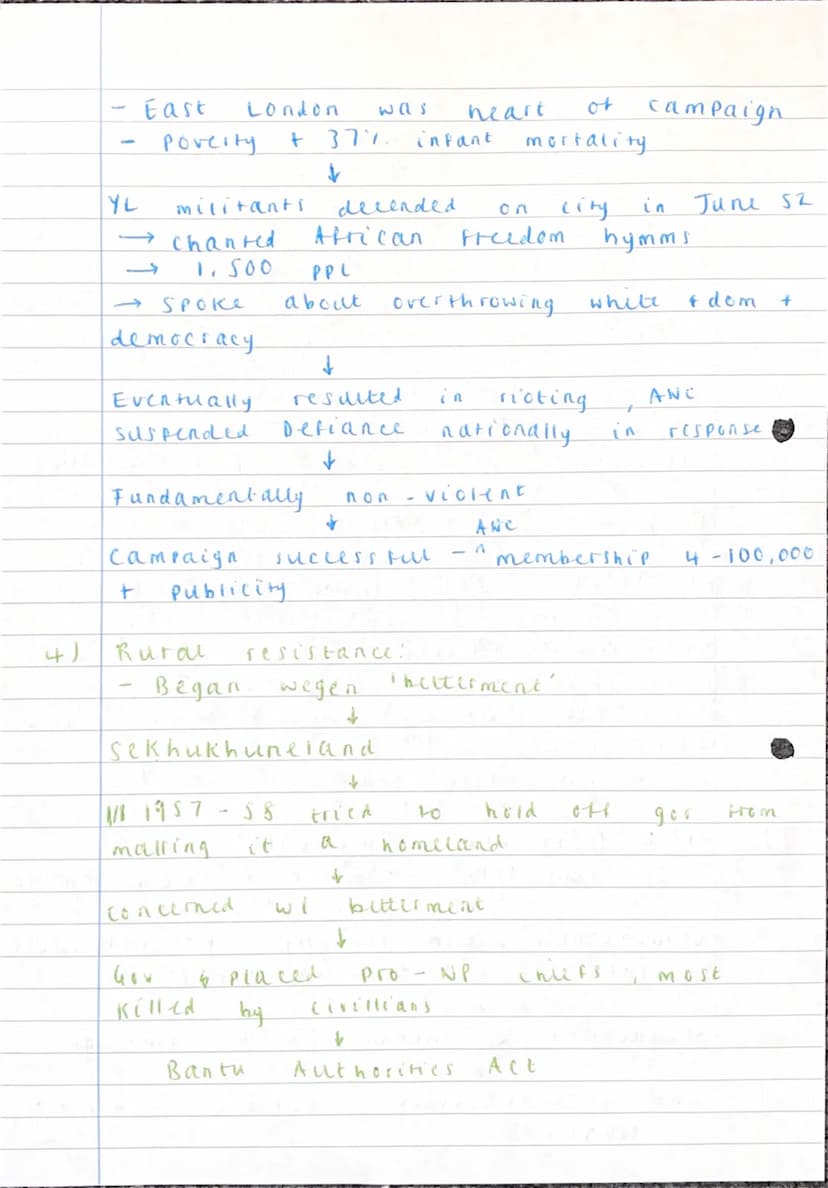 - East London was heart of campaign
- poverty + 37% infant mortality
↓
YL militants decended on city in June 52
→ chanted African freedom hymms
→ 1,500 ppl
→ spoke about overthrowing white dom +
democracy
↓
Eventually resulted in rioting, ANC
suspended Defiance nationally in response
↓
Fundamentally non-violent
↓
Campaign successful - ANC membership 4-100,000
+ publicity
4) Rural resistance:
- Began wegen 'betterment'
↓
Sekhukhuneland
↓
1957-58 tried to hold off gov from
making it a homeland
↓
concerned w/ betterment
↓
Gov placed pro-NP chiefs, most
killed by civillians
↓
Bantu Authorities Act